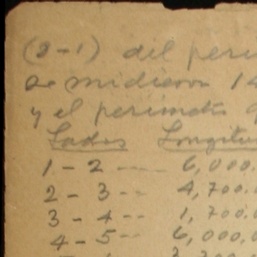 (2-1) del peri
se midieron 14
y el perimetro
Lados Longitu
1 - 2 ---- 6,000.
2 - 3 -- 4,700.
3 - 4 -- 1,700.
4 - 5 -- 6,000,0